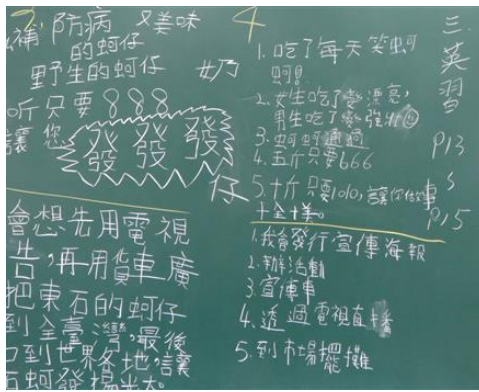 補,防病 又美味
的蚵仔
野生的蚵仔
斤只要888
讓您
發 發 發
會想先用電視
告,再用貨車廣
把東石的蚵仔
到全臺灣,最後
到世界各地,讓
石蚵發揚光大。
奶
仔
4
1. 吃了每天笑蚵
蚵。
2. 女生吃了變漂亮,
男生吃了變強壯
3. 蚵蚵通過
4. 五斤只要666
5. 十斤只要1010,讓你做事
十全十美。
1. 我會發行宣傳海報
2. 辦活動
3. 宣傳車
4. 透過電視直播
5. 到市場擺攤
三、英習
P13
P15